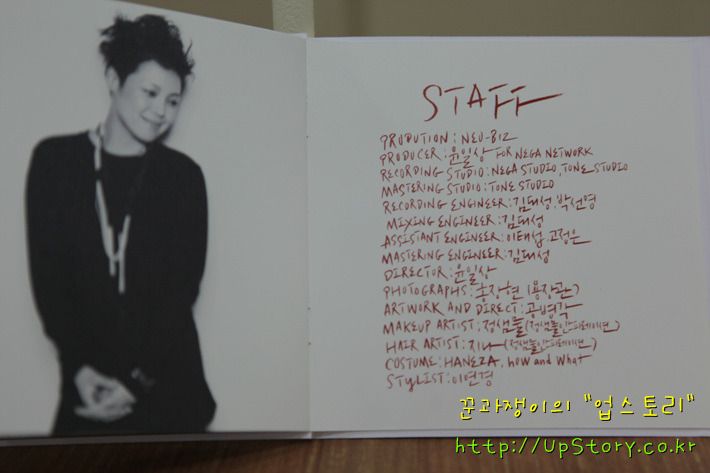 STAFF
PRODUTION : NEU-BIZ
PRODUCER : 윤일상 FOR NEGA NETWORK
RECORDING STUDIO : NEGA STUDIO, TONE STUDIO
MASTERING STUDIO : TONE STUDIO
RECORDING ENGINEER : 김대성, 박선영
MIXING ENGINEER : 김대성
ASSISTANT ENGINEER : 이태섭, 고정은
MASTERING ENGINEER : 김대성
DIRECTOR : 윤일상
PHOTOGRAPHS : 홍장현 (용장관)
ARTWORK AND DIRECT : 공병각
MAKEUP ARTIST : 정샘물 (정샘물인스피레이션)
HAIR ARTIST : 지나 (정샘물인스피레이션)
COSTUME : HANEZA, how and what
STYLIST : 이연경
꾼과쟁이의 "업스토리"
http://UpStory.co.kr